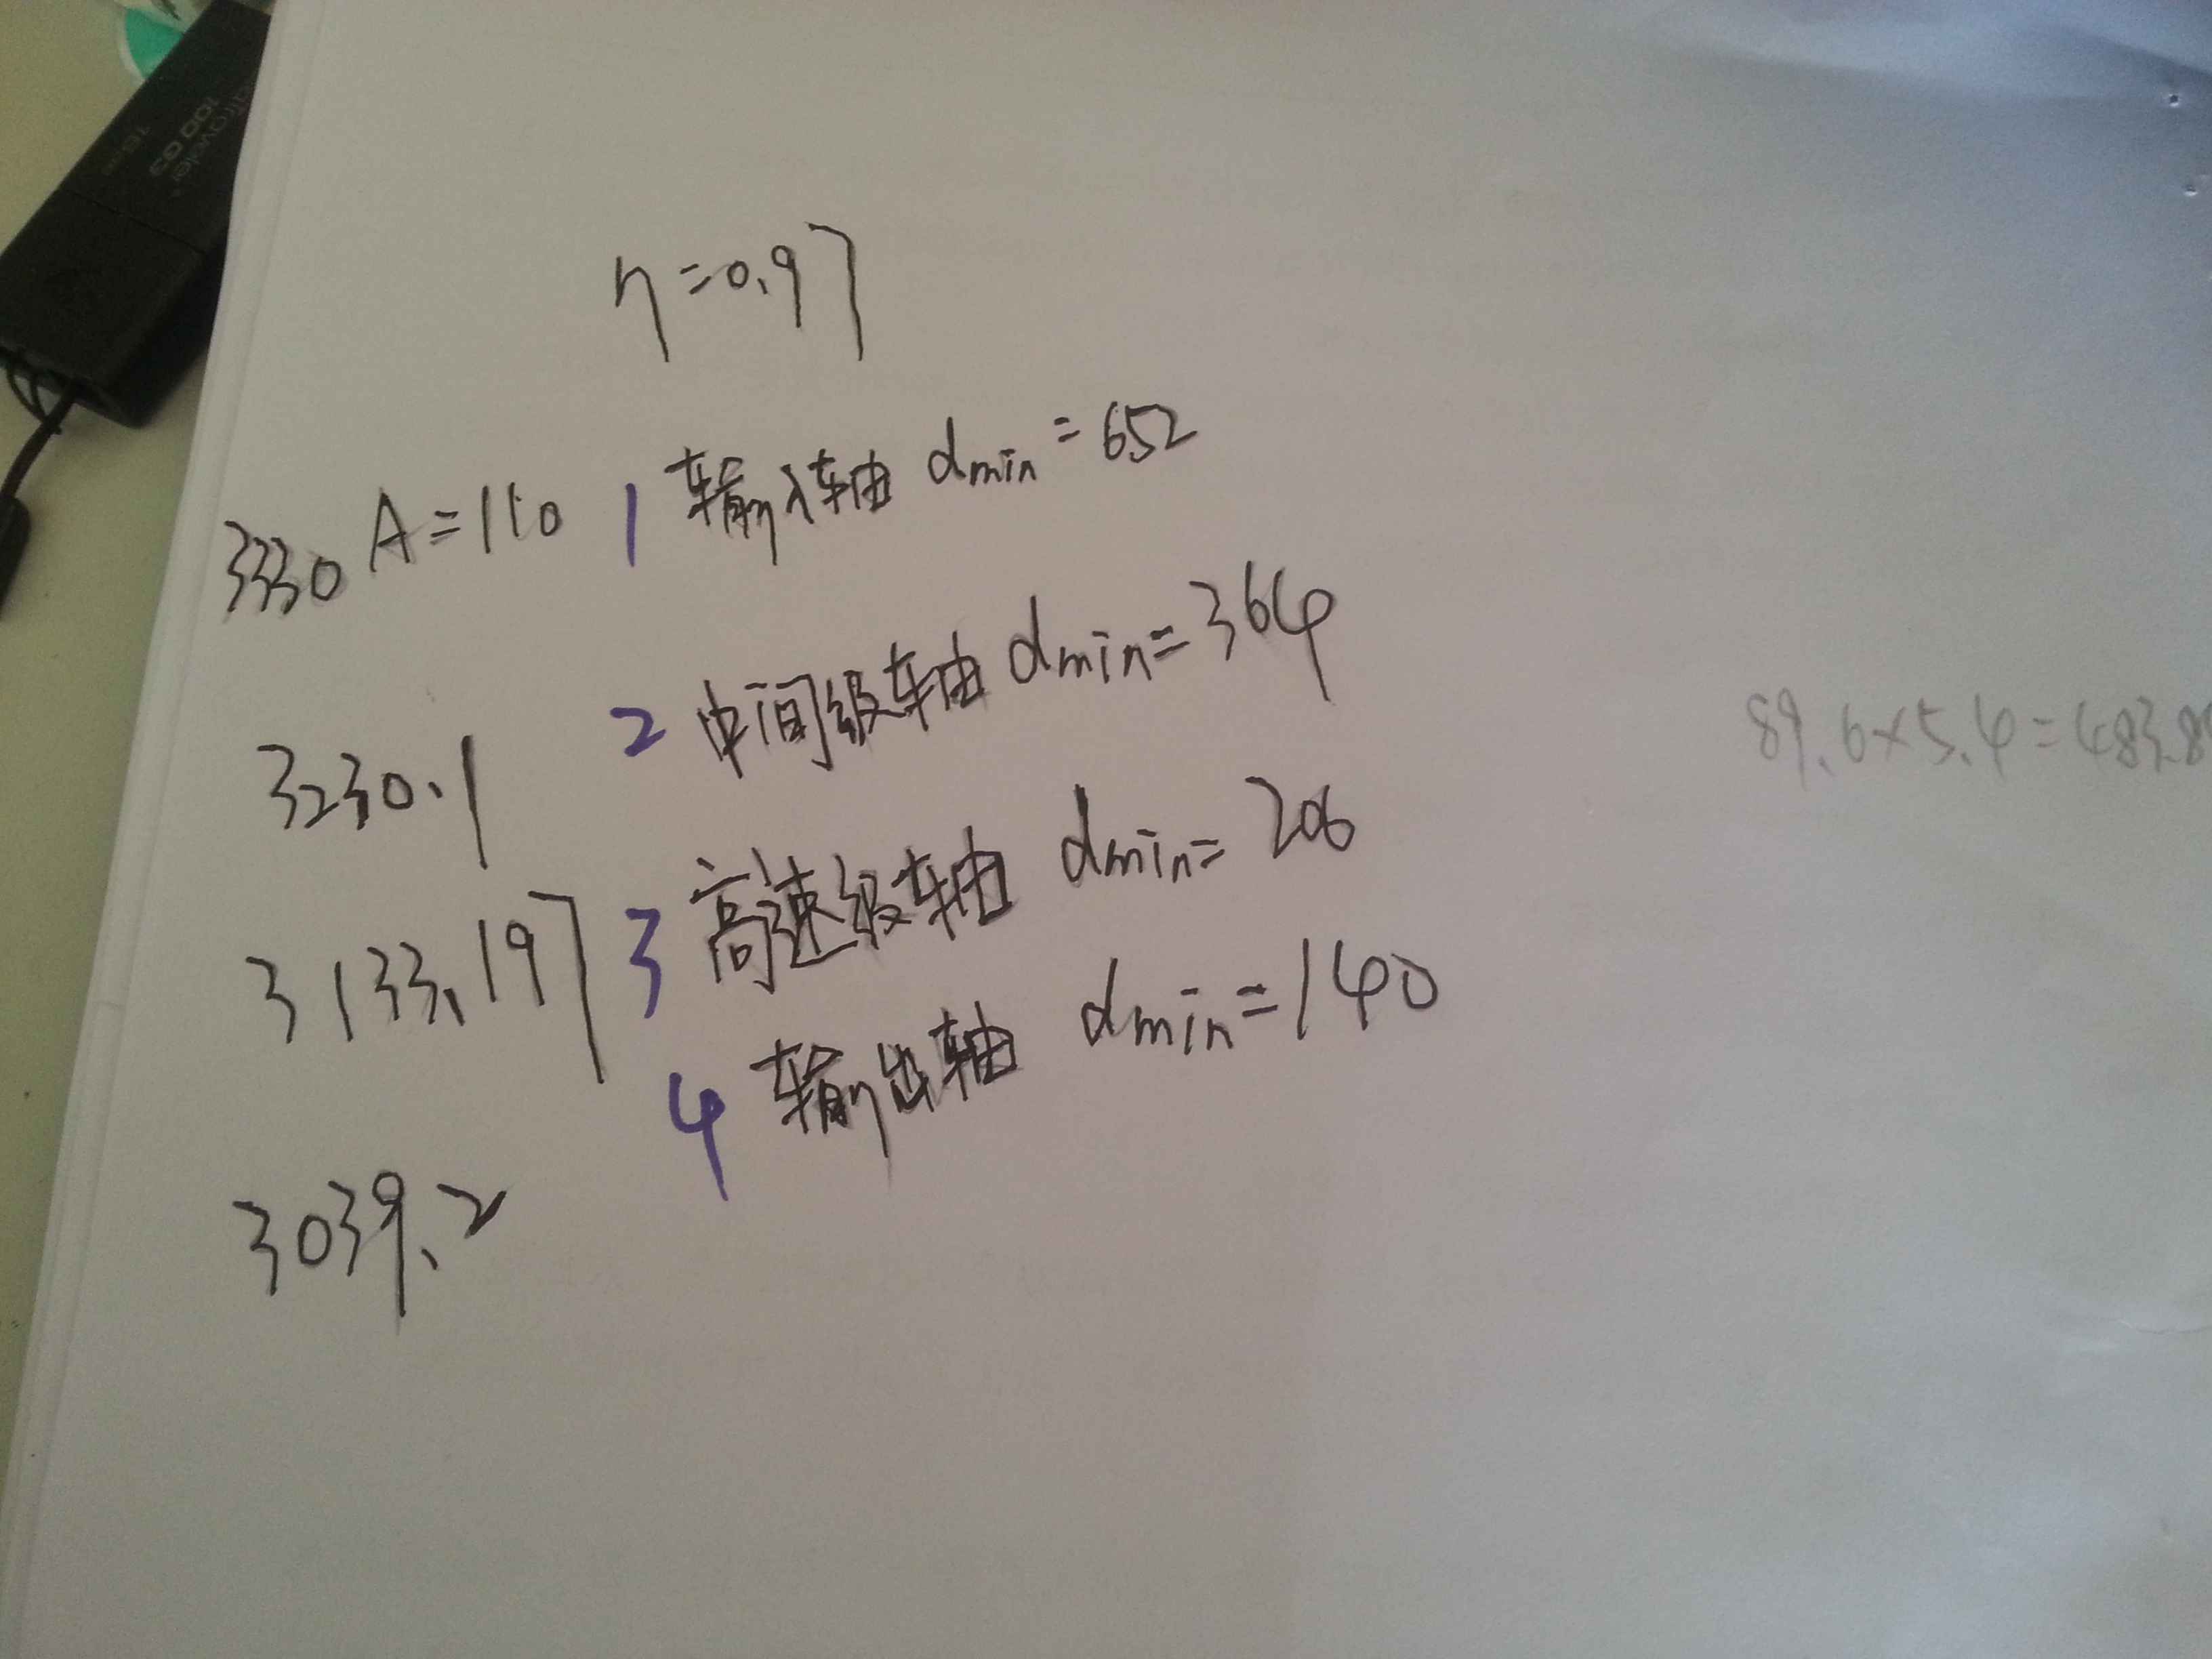 η=0.97
3330 A=110 1 输入轴 dmin=652
3230.1 2 中间级轴 dmin=364
3133.197 3 高速级轴 dmin=206
4 输出轴 dmin=140
3039.2
89.6×5.4=483.8
100 G3